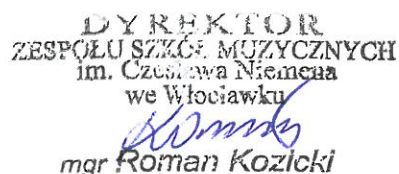 DYREKTOR
ZESPOŁU SZKÓŁ MUZYCZNYCH
im. Czesława Niemena
we Włocławku
mgr Roman Kozicki